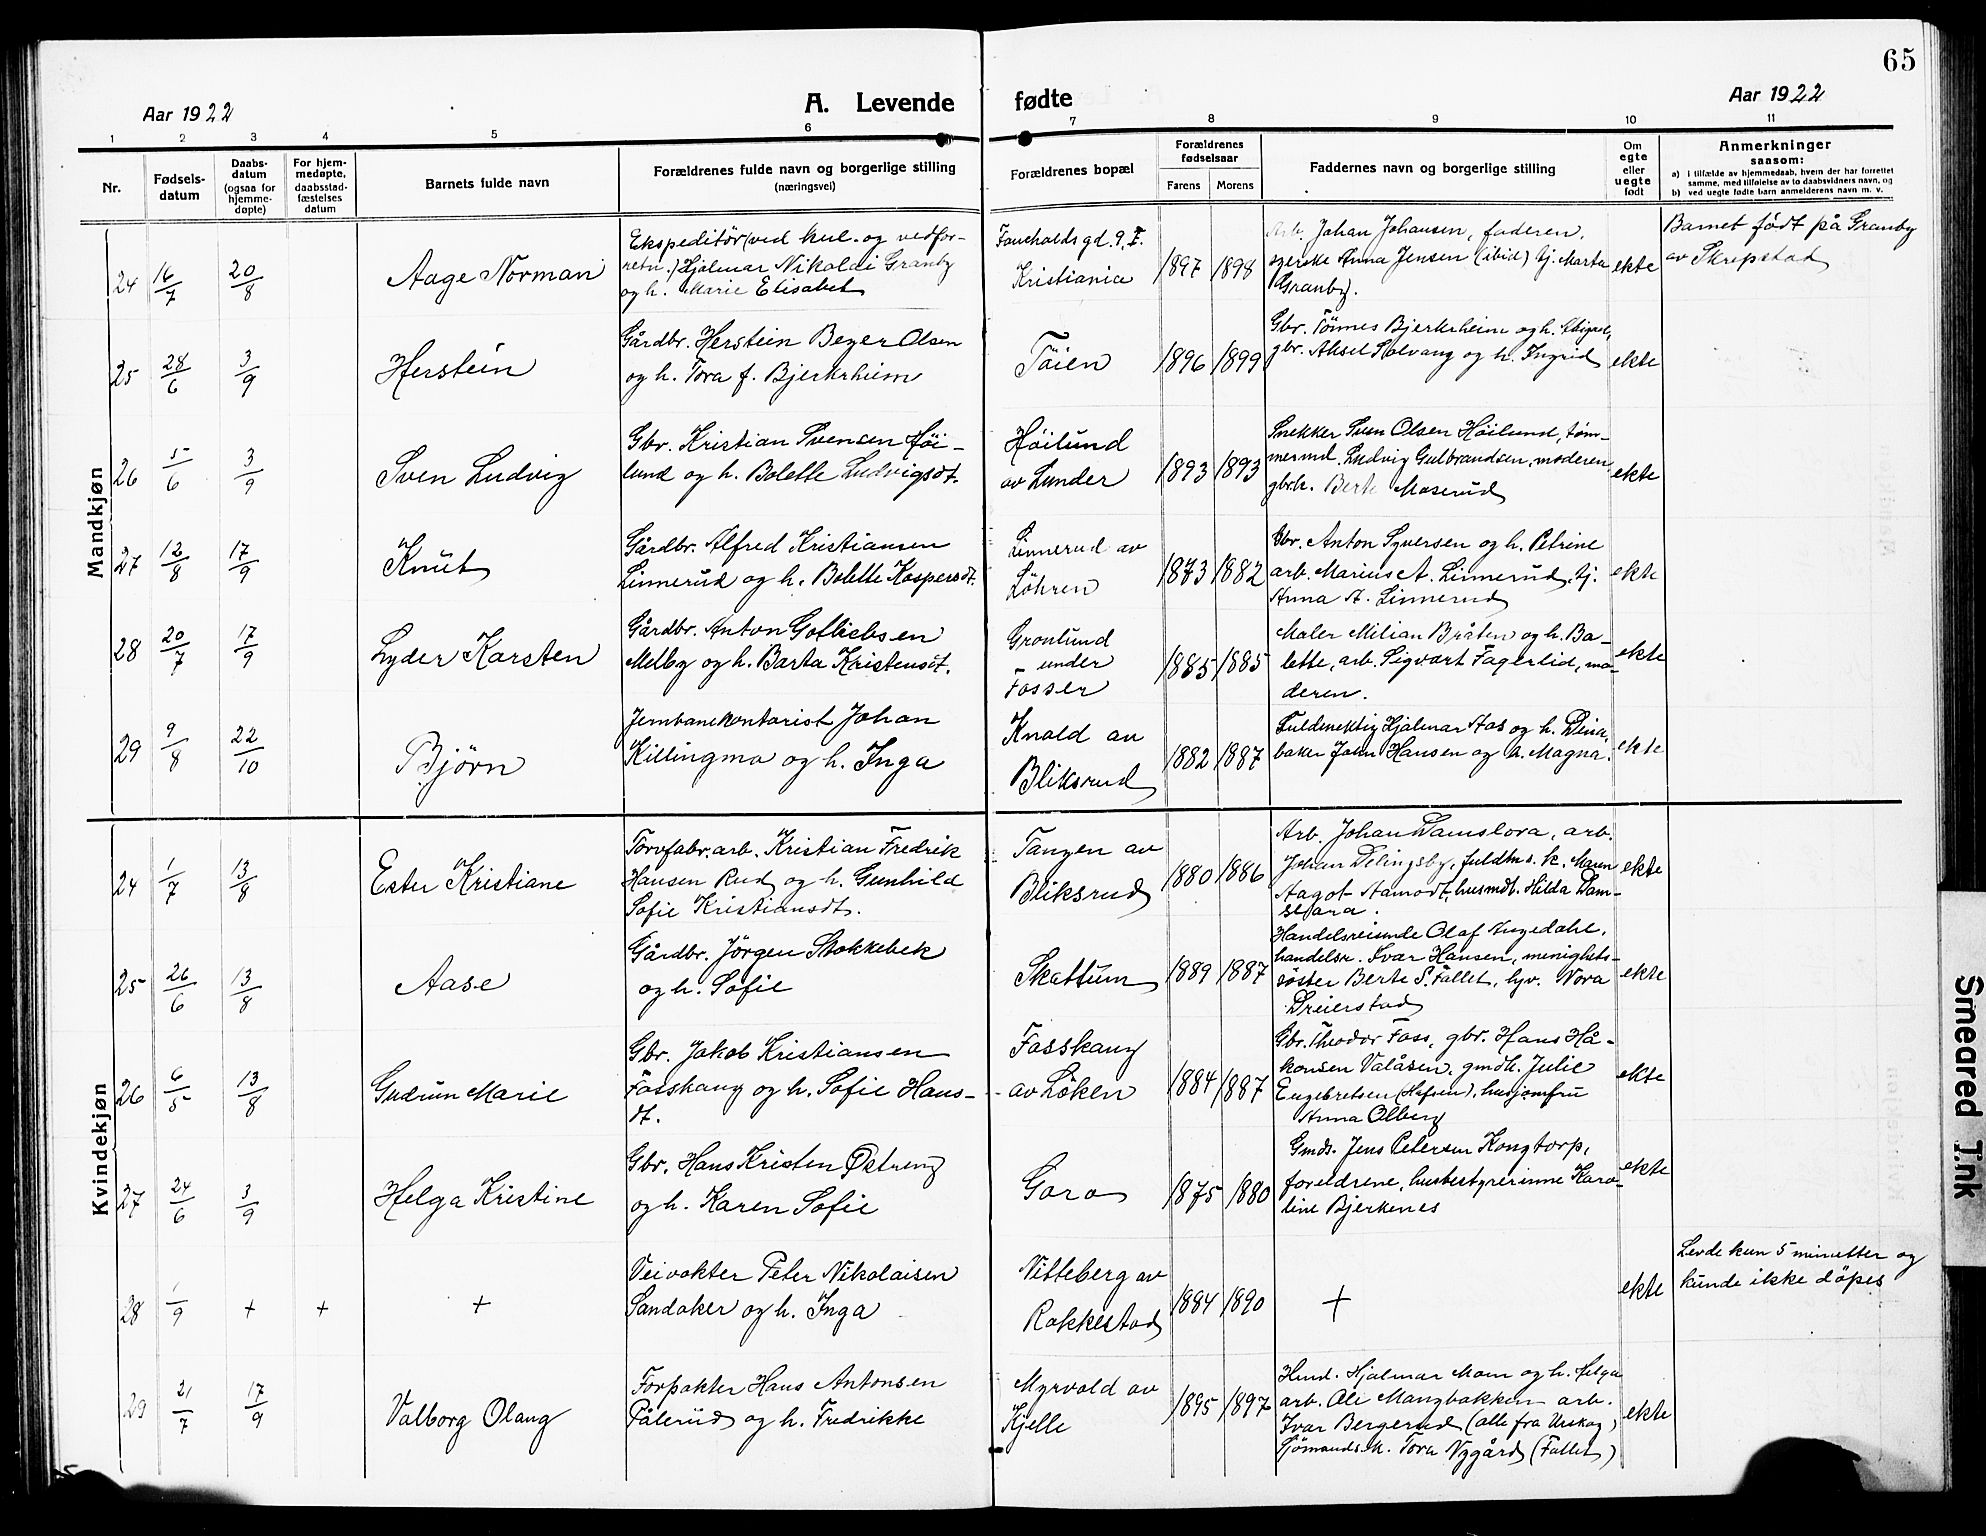 65
Aar 1922
A. Levende fødte
Aar 1922
1 2 3 4 5 6 7 8 9 10 11
Nr.
Fødsels-
datum
Daabs-
datum
(ogsaa for
hjemme-
døpte)
For hjem-
medøpte,
daabsstad-
fæstelses
datum
Barnets fulde navn
Forældrenes fulde navn og borgerlige stilling
(næringsvei)
Forældrenes bopæl
Forældrenes
fødselsaar
Farens Morens
Faddernes navn og borgerlige stilling
Om
egte
eller
uegte
født
Anmerkninger
saasom:
a) i tilfælde av hjemmedaab, hvem der har forrettet
samme, med tilføielse av to daabsvidners navn, og
b) ved uegte født barn anmelderens navn m. v.
Mandkjøn
24 16/7 20/8 Aage Norman
Ekspeditör (ved kul- og vedfor-
retn.) Hjalmar Nikolai Granby
og h. Marie Elisabet
Faucholdsgd. 9, I.
Kristiania
1897 1898
Arb. Johan Johansen, faderen,
syerske Anna Jensen (ibid) tj. Marta
Granby.
ekte
Barnet födt på Granby
av Skrepstad
25 28/6 3/9 Herstein
Gårdbr. Herstein Beyer Olsen
og h. Tora f. Bjerkrheim
Töien
1896 1899
Gbr. Tönnes Bjerkrheim og h. Abigael,
gbr. Aksel Solvang og h. Ingrid
ekte
26 5/6 3/9 Sven Ludvig
Gbr. Kristian Svensen Höi-
lund og h. Bolette Ludvigsdt.
Höilund
av Lunder
1893 1893
Snekker Sven Olsen Höilund, töm-
mermd. Ludvig Gulbrandsen, moderen,
gbrh. Berte Moserud
ekte
27 12/8 17/9 Knut
Gårdbr. Alfred Kristiansen
Linnerud og h. Bolette Kaspersdt.
Linnerud av
Löhren
1873 1882
Gbr. Anton Syversen og h. Petrine
arb. Marius A. Linnerud, tj.
Anna A. Linnerud
ekte
28 20/7 17/9 Lyder Karsten
Gårdbr. Anton Gotliebsen
Melby og h. Barta Kristensdt.
Gronlund
under
Fosser
1885 1885
Maler Milian Bråten og h. Bo-
lette, arb. Sigvart Fagerlid, mo-
deren.
ekte
29 9/8 22/10 Björn
Jernbanekontorist Johan
Killingmo og h. Inga
Knold av
Bliksrud
1882 1887
Fuldmektig Hjalmar Aas og h. Dina,
baker John Hansen og h. Magna.
ekte
Kvindekjøn
24 1/7 13/8 Ester Kristiane
Torvfabr. arb. Kristian Fredrik
Hansen Rud og h. Gunhild
Sofie Kristiansdt.
Tangen av
Bliksrud
1880 1886
Arb. Johan Damslora, arb.
Johan Delingsby, fuldm.s.k. Maren
Aagot Aamodt, husmdt. Hilda Dam-
slora.
ekte
25 26/6 13/8 Aase
Gårdbr. Jörgen Stokkebek
og h. Sofie
Skattum
1889 1887
Handelsreisende Olaf Ingedahl,
handelsr. Ivar Hansen, minighets-
söster Berte S. Fallet, hjv. Nora
Dreierstad
ekte
26 6/5 13/8 Gudrun Marie
Gbr. Jakob Kristiansen
Fosskaug og h. Sofie Hans-
dt.
Fosskaug
av Löken
1884 1887
Gbr. Theodor Foss, gbr. Hans Hå-
konsen Valåsen, gmdh. Julie
Engebretsen (Hafsen), husjomfru
Anna Olberg
ekte
27 24/6 3/9 Helga Kristine
Gbr. Hans Kristen Østreng
og h. Karen Sofie
Gara
1875 1880
Gmds. Jens Petersen Kongtorp,
foreldrene, husbestyrerinne Karo-
line Bjerkenes
ekte
28 1/9 + + +
Veivokter Peter Nikolaisen
Sandaker og h. Inga
Vitteberg av
Rakkestad
1884 1890
+
ekte
Levde kun 5 minutter og
kunde ikke döpes
29 21/7 17/9 Valborg Olaug
Forpakter Hans Antonsen
Pålerud og h. Fredrikke
Myrvold av
Kjelle
1895 1897
Hmd. Hjalmar Mom og h. Helga
arb. Ole Mangbakken arb.
Ivar Bergerud (alle fra Urskog)
Sjömands.k. Tora Nygård (Fallet)
ekte
Smeared Ink